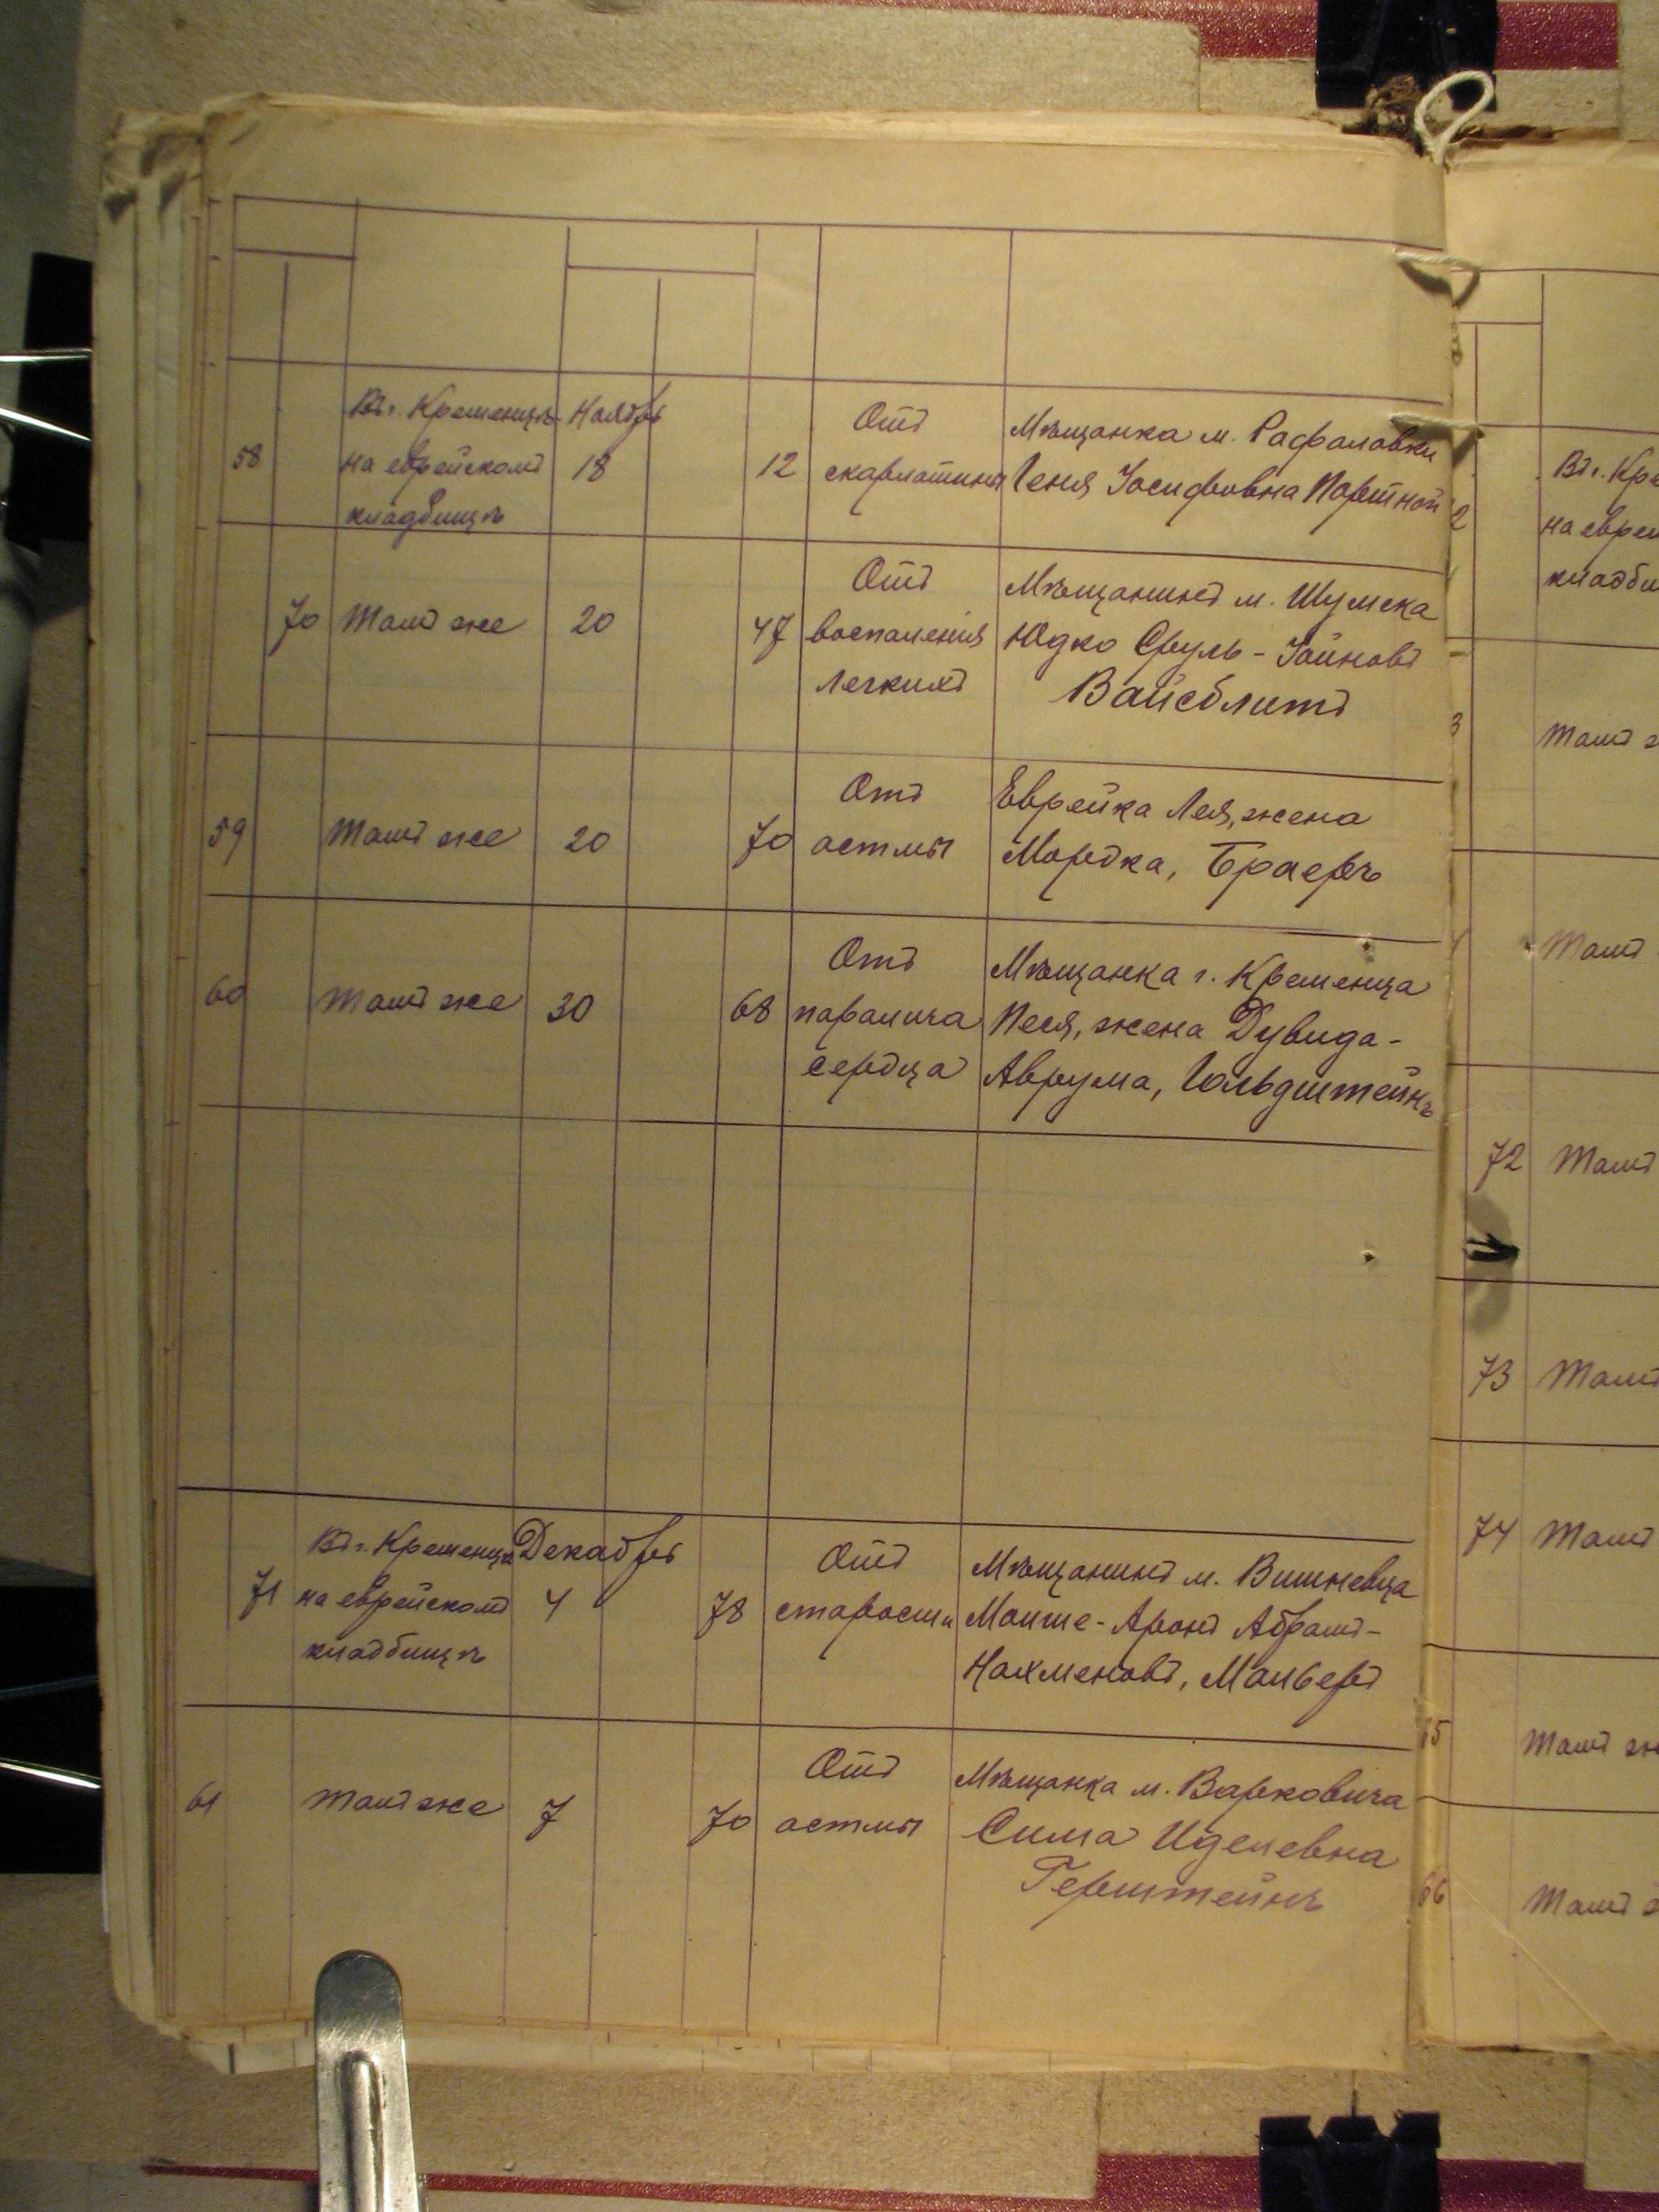 Въ г. Кременцѣ Ноябрь Отъ Мѣщанка м. Рафаловки
58 на еврейскомъ 18 12 скарлатины Геня Іосифовна Портной
кладбищѣ
Отъ Мѣщанинъ м. Шумска
70 Тамъ же 20 47 воспаленія Юдко Сруль-Хаимовъ
легкихъ Вайсблитъ
Отъ Еврейка Лея, жена
59 Тамъ же 20 70 астмы Мордка, Браеръ
Отъ Мѣщанка г. Кременца
60 Тамъ же 30 68 паралича Песя, жена Дувида-
сердца Аврума, Гольдштейнъ
Въ г. Кременцѣ Декабрь Отъ Мѣщанинъ м. Вишневца
71 на еврейскомъ 4 78 старости Моише-Аронъ Абрамъ-
кладбищѣ Нахменовъ,
Отъ Мѣщанка м. Варковича
61 Тамъ же 7 70 астмы Сима Иделевна
Герштейнъ
Въ г.
2
3 Тамъ
Тамъ
72 Тамъ
73 Тамъ
74 Тамъ
65 Тамъ
66 Тамъ